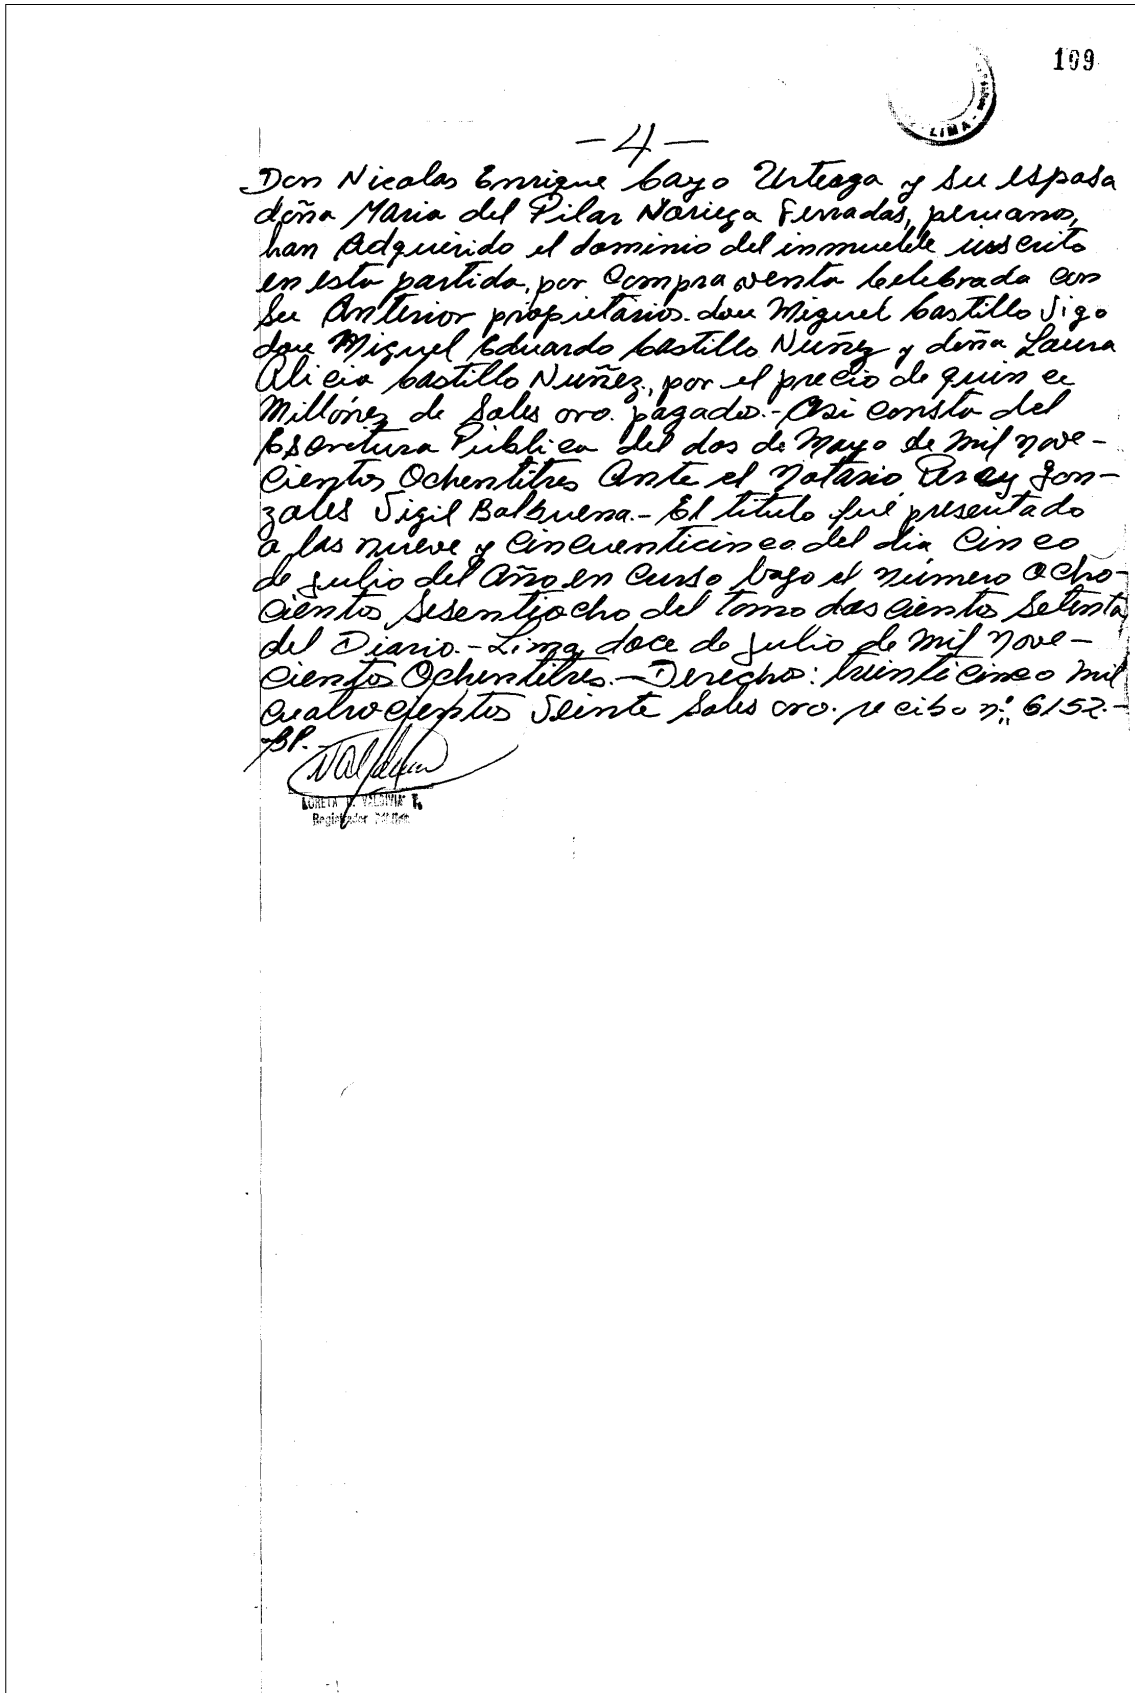 109
LIMA
-4-
Don Nicolas Enrique Cayo Urteaga y su esposa
doña Maria del Pilar Noriega Ferradas, peruanos,
han Adquirido el dominio del inmueble inscrito
en esta partida, por Compra venta Celebrada con
su Anterior propietarios don Miguel Castillo Vigo
don Miguel Eduardo Castillo Nuñez y doña Laura
Alicia Castillo Nuñez, por el precio de quince
Millónes de Soles oro. pagados.- Asi consta del
Escritura Pública del dos de Mayo de mil nove-
cientos Ochentitres Ante el Notario Percy Gon-
zales Vigil Balbuena.- El titulo fué presentado
a las nueve y Cincuenticinco del dia Cinco
de julio del Año en Curso bajo el número Ocho-
cientos sesentiocho del tomo doscientos setenta
del Diario.- Lima, doce de julio de mil nove-
cientos Ochentitres.- Derechos: treinticinco mil
cuatrocientos Veinte Soles oro. recibo nº 6152.-
BP.
LORETA VALDIVIA T.
Registrador